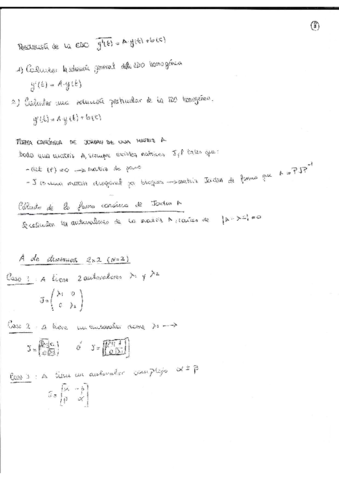 Resolución de la EDO y'(t) = A·y(t) + b(t)
1) Calcular la solución general de la EDO homogénea
y'(t) = A·y(t)
2) Calcular una solución particular de la EDO homogénea.
y'(t) = A y(t) + b(t)
FORMA CANÓNICA DE JORDAN DE UNA MATRIZ A
Dada una matriz A, siempre existen matrices J, P tales que:
- det(P) ≠ 0 → matriz de paso
- J es una matriz diagonal por bloques → matriz Jordan de forma que A = PJP⁻¹
Cálculo de la forma canónica de Jordan A
Se calculan los autovalores de la matriz A, raíces de |A - λI| = 0
A de dimensión 2x2 (n=2)
Caso 1: A tiene 2 autovalores λ1 y λ2
J = (λ1 0
0 λ2)
Caso 2: A tiene un autovalor doble λ1
J = ó J =
Caso 3: A tiene un autovalor complejo α ± β
J = [α -β
β α]